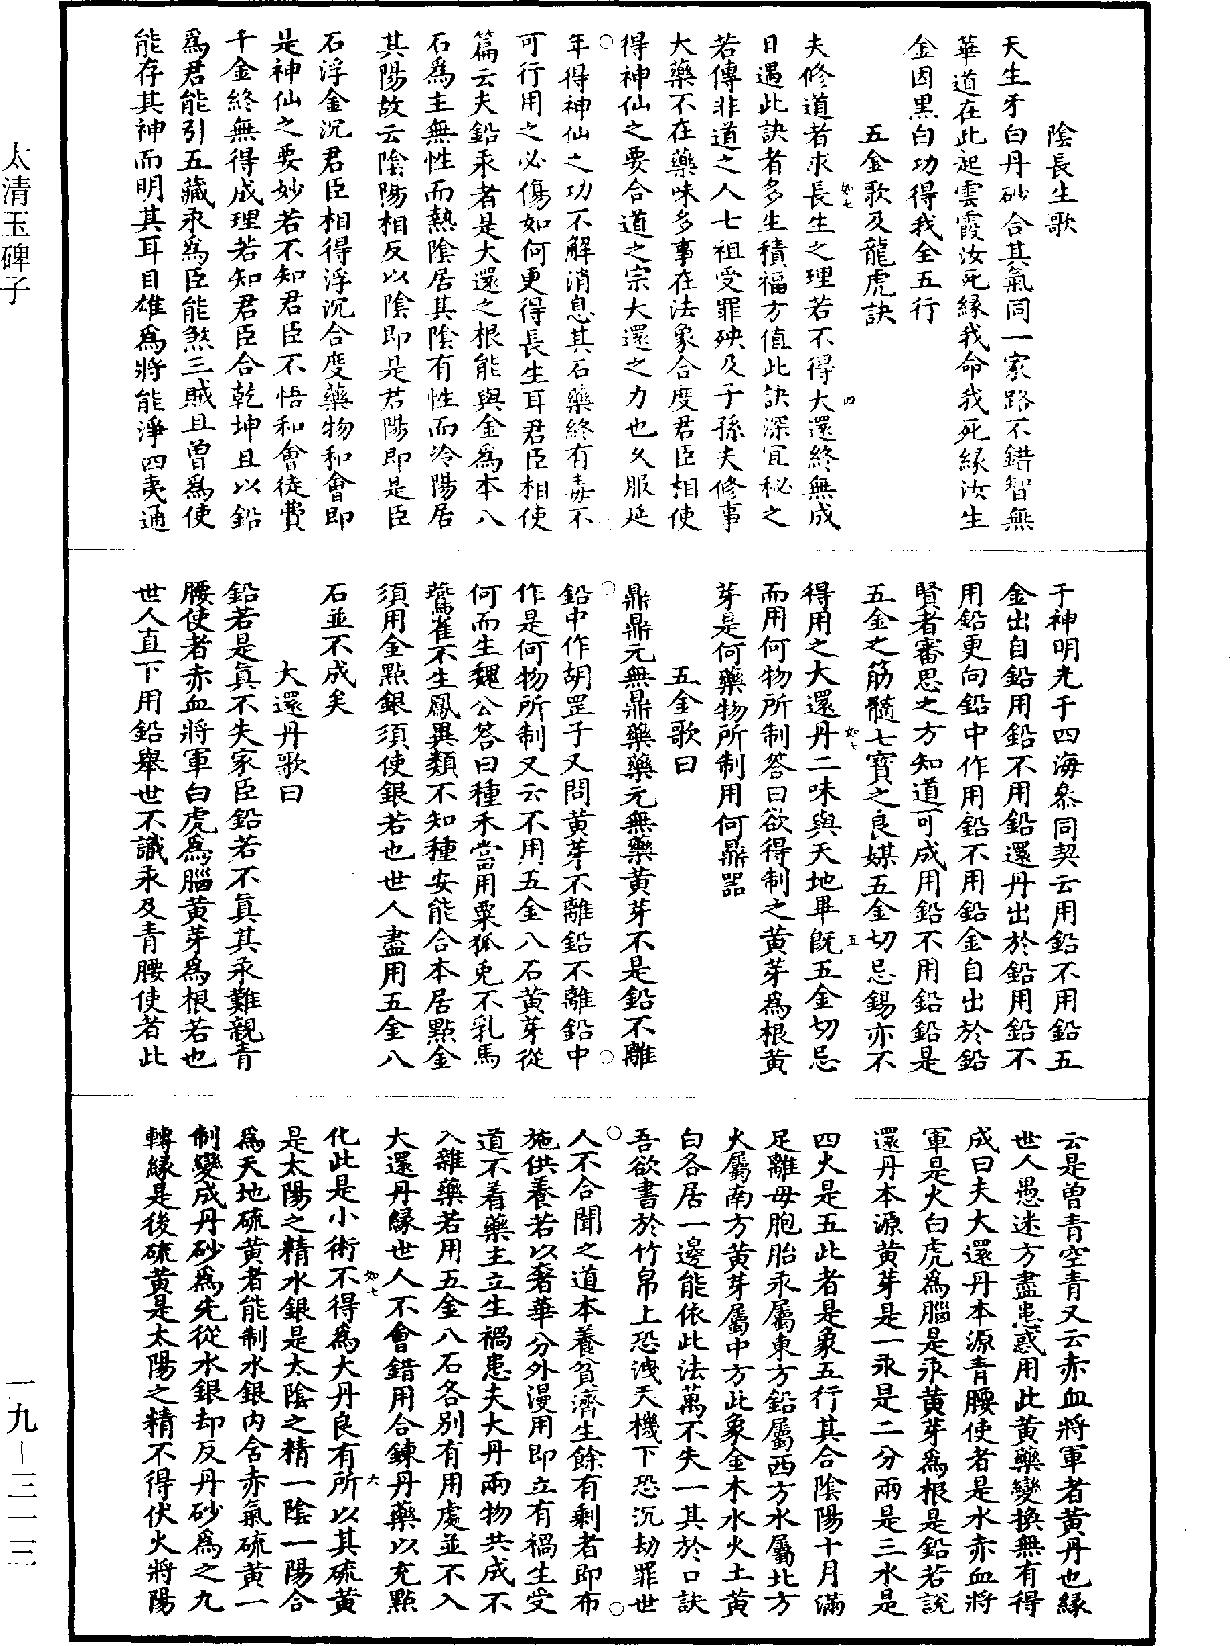 陰長生歌
天生牙白丹砂合其氣同一家路不錯智無
華道在此起雲霞汝死緣我命我死緣汝生
金因黑白功得我全五行
五金歌及龍虎訣
夫修道者求長生之理若不得大還終無成
日遇此訣者多生積福方值此訣深宜秘之
若傳非道之人七祖受罪殃及子孫夫修事
大藥不在藥味多事在法象合度君臣相使
得神仙之要合道之宗大還之力也久服延
年得神仙之功不解消息其石藥終有毒不
可行用之必傷如何更得長生耳君臣相使
篇云夫鉛汞者是大還之根能與金為本八
石為主無性而熱陰居其陰有性而冷陽居
其陽故云陰陽相反以陰即是君陽即是臣
石浮金沉君臣相得浮沉合度藥物和會即
是神仙之要妙若不知君臣不悟和會徒費
千金終無得成理若知君臣合乾坤且以鉛
為君能引五藏汞為臣能煞三賊且曾為使
能存其神而明其耳目雄為將能淨四夷通
于神明光于四海叅同契云用鉛不用鉛五
金出自鉛用鉛不用鉛還丹出於鉛用鉛不
用鉛更向鉛中作用鉛不用鉛金自出於鉛
賢者審思之方知道可成用鉛不用鉛鉛是
五金之筋髓七寶之良媒五金切忌錫亦不
得用之大還丹二味與天地畢既五金切忌
而用何物所制答曰欲得制之黃芽為根黃
芽是何藥物所制用何鼎器
五金歌曰
鼎鼎元無鼎藥藥元無藥黃芽不是鉛不離
鉛中作胡罡子又問黃芽不離鉛不離鉛中
作是何物所制又云不用五金八石黃芽從
何而生魏公答曰種禾當用粟狐兔不乳馬
鷰雀不生鳳異類不知種安能合本居點金
須用金點銀須使銀若也世人盡用五金八
石並不成矣
大還丹歌曰
鉛若是真不失家臣鉛若不真其汞難親青
腰使者赤血將軍白虎為腦黃芽為根若也
世人直下用鉛舉世不識汞及青腰使者此
云是曾青空青又云赤血將軍者黃丹也緣
世人愚迷方盡患惑用此黃藥變換無有得
成曰夫大還丹本源青腰使者是水赤血將
軍是火白虎為腦是汞黃芽為根是鉛若說
還丹本源黃芽是一汞是二分兩是三水是
四火是五此者是象五行其合陰陽十月滿
足離母胞胎汞屬東方鉛屬西方水屬北方
火屬南方黃芽屬中方此象金木水火土黃
白各居一邊能依此法萬不失一其於口訣
吾欲書於竹帛上恐洩天機下恐沉劫罪世
人不合聞之道本養貧濟生餘有剩者即布
施供養若以奢華分外漫用即立有禍生受
道不着藥主立生禍患夫大丹兩物共成不
入雜藥若用五金八石各別有用處並不入
大還丹緣世人不會錯用合鍊丹藥以充點
化此是小術不得為大丹良有所以其硫黃
是太陽之精水銀是太陰之精一陰一陽合
為天地硫黃者能制水銀內含赤氣硫黃一
制變成丹砂為先從水銀却反丹砂為之九
轉緣是後硫黃是太陽之精不得伏火將陽
如七 四
如七 五
如七 六
太清玉碑子
一九–三一三